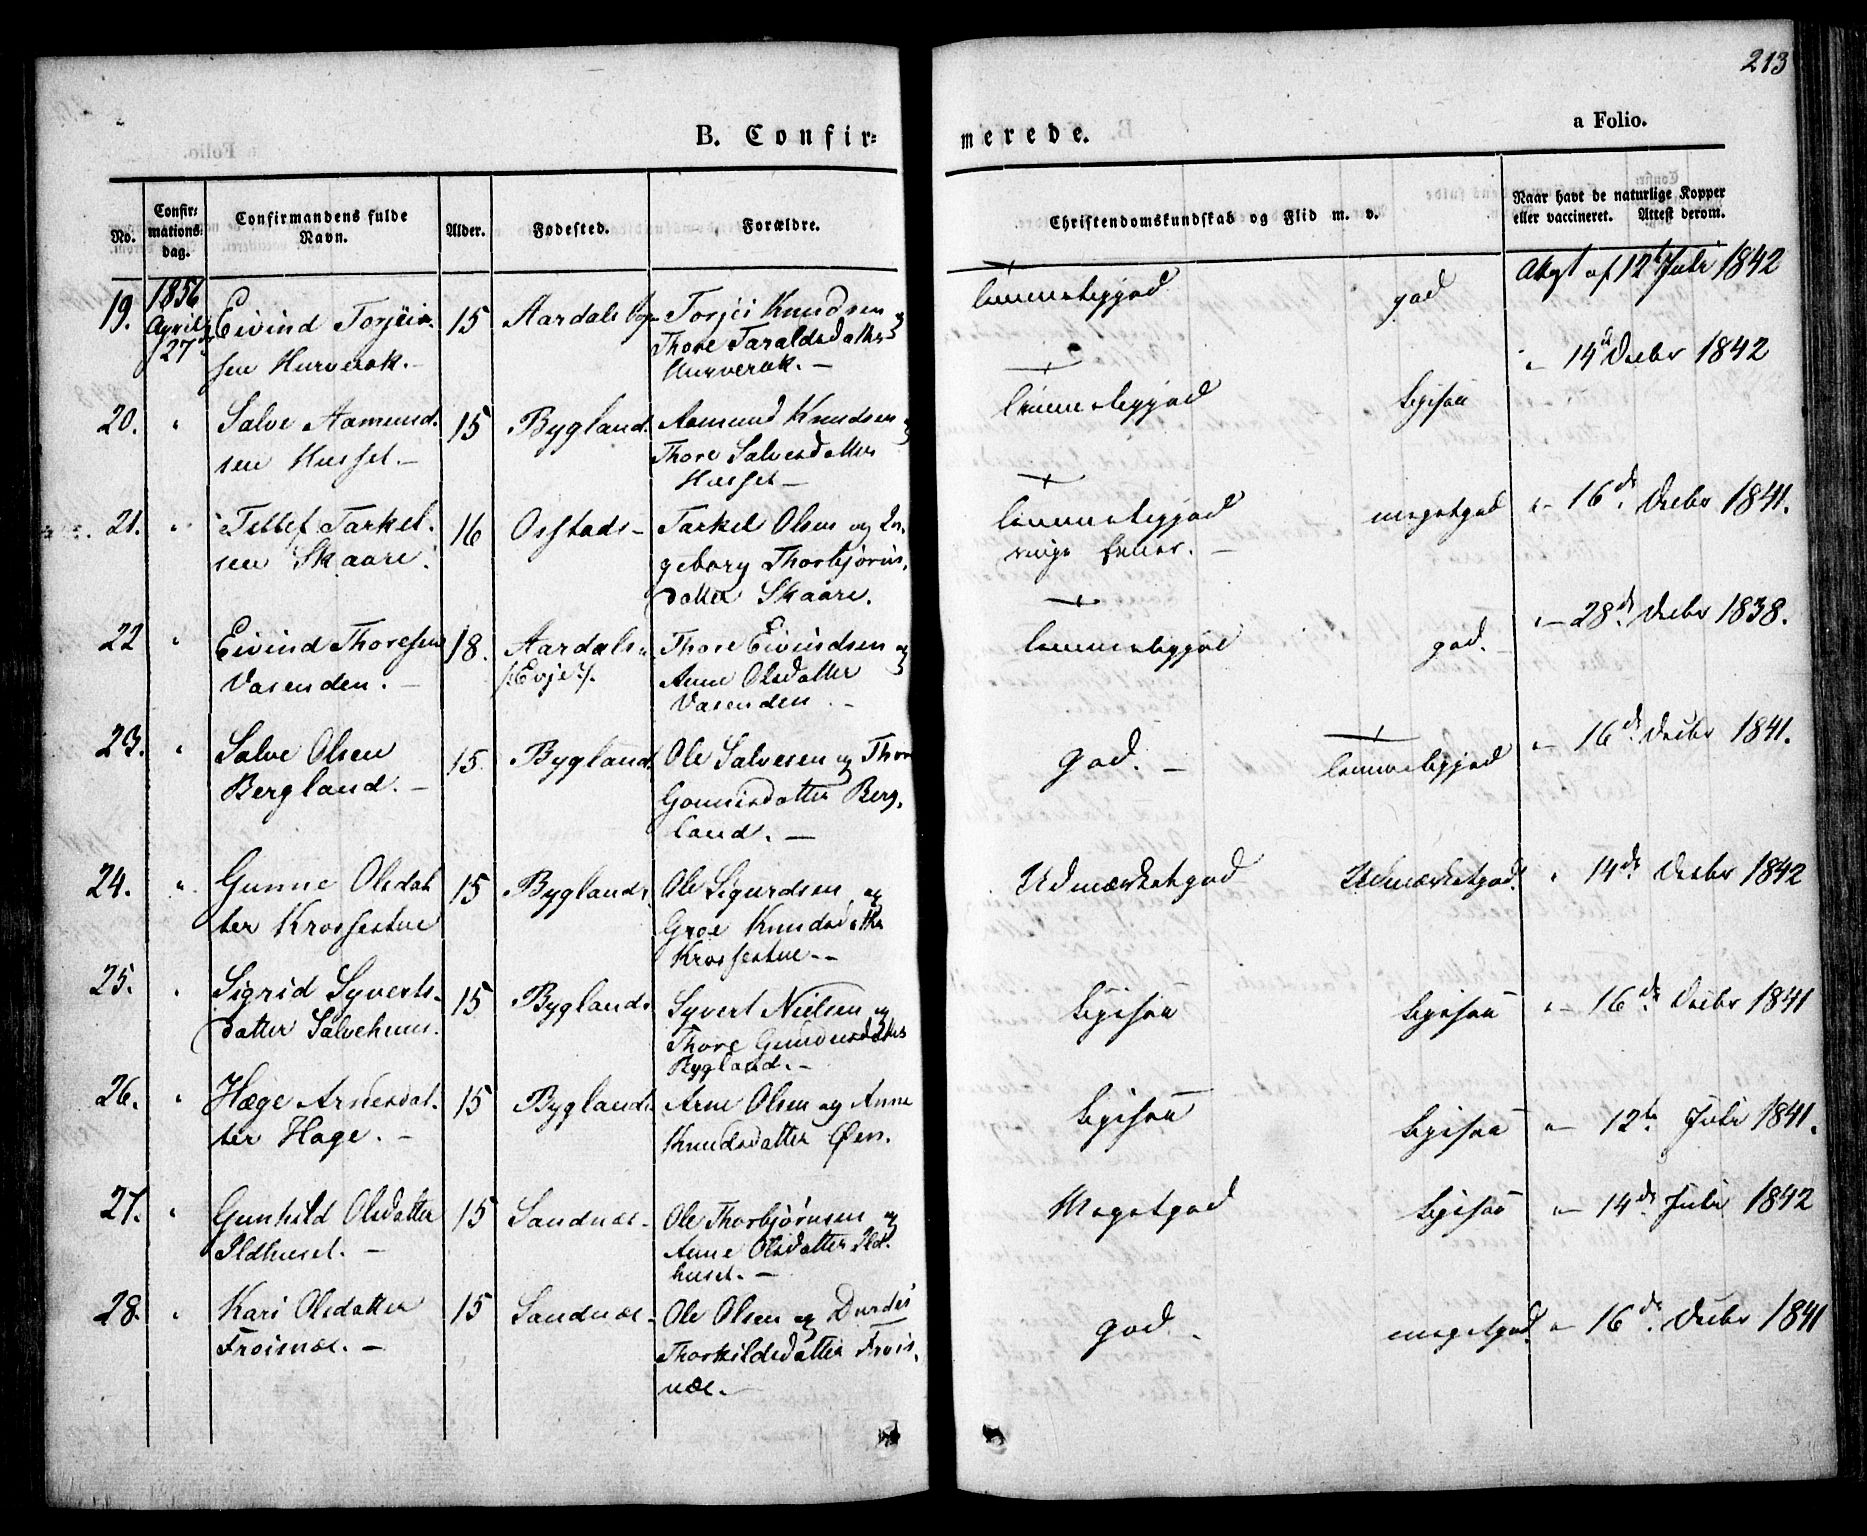 213
B. Confir=
merede.
a Folio.
No.
Confir=
mations
dag.
Confirmandens fulde
Navn.
Alder.
Fødested.
Forældre.
Christendomskundskab og Flid m. v.
Naar havt de naturlige Kopper
eller vaccineret. Attest derom.
19.
1856
April
27de
Eivind Torjei-
sen Hurverak.
15
Aardals
Torjei Knudsen og
Thore Taraldsdatter
Hurverak. —
temmeligod
god
Attest af 12te Juli 1842
20.
"
Salve Aamund.
sen Husset. —
15
Bygland.
Aamund Knudsen og
Thore Salvesdatter
Husset —
temmeligod
" 14de Decbr 1842
21.
"
Tellef Tarkel.
sen Skaare.
16
Osstads-
Tarkel Olsen og In.
geborg Thorbjørns.
datter Skaare.
temmeligod
megetgod
" 16de Decbr 1841.
22
"
Eivind Thoresen
Vasenden. —
18.
Aardals.
/:Evje:/.
Thore Eivindsen og
Anne Olsdatter
Vasenden. —
temmeligod
god.
" 28de Decbr 1838.
23.
"
Salve Olsen
Bergland. —
15
Bygland.
Ole Salvesen og Thore
Gunnesdatter Berg.
land. —
god. —
temmeligod
" 16de Decbr 1841.
24.
"
Gunne Olsdat
ter Krossestue
15
Byglands
Ole Sigurdsen og
Groe Knudsdatter
Krossestue. -
Udmærketgod
Udmærketgod.
" 14de Decbr 1842
25.
"
Sigrid Syverts-
datter Salvehuus.
15
Byglands
Syvert Nielsen og
Thore Gundersdatter
Bygland. -
" 16de Decbr 1841
26.
"
Hæge Arnesdat.
ter Hage. —
15
Byglands.
Arne Olsen og Anne
Knudsdatter Øen.
" 12te Juli 1841.
27.
"
Gunhild Olsdatter
Ildhuset. —
15
Sandnæs.
Ole Thorbjørnsen og
Anne Olsdatter Ild.
huset. —
Megetgod
" 14de Juli 1842
28.
"
Kari Olsdatter
Frøisnæs. —
15
Sandnæs.
Ole Olsen og Durdei
Thorkildsdatter Frøis.
næs. —
god.
megetgod.
" 16de Decbr 1841